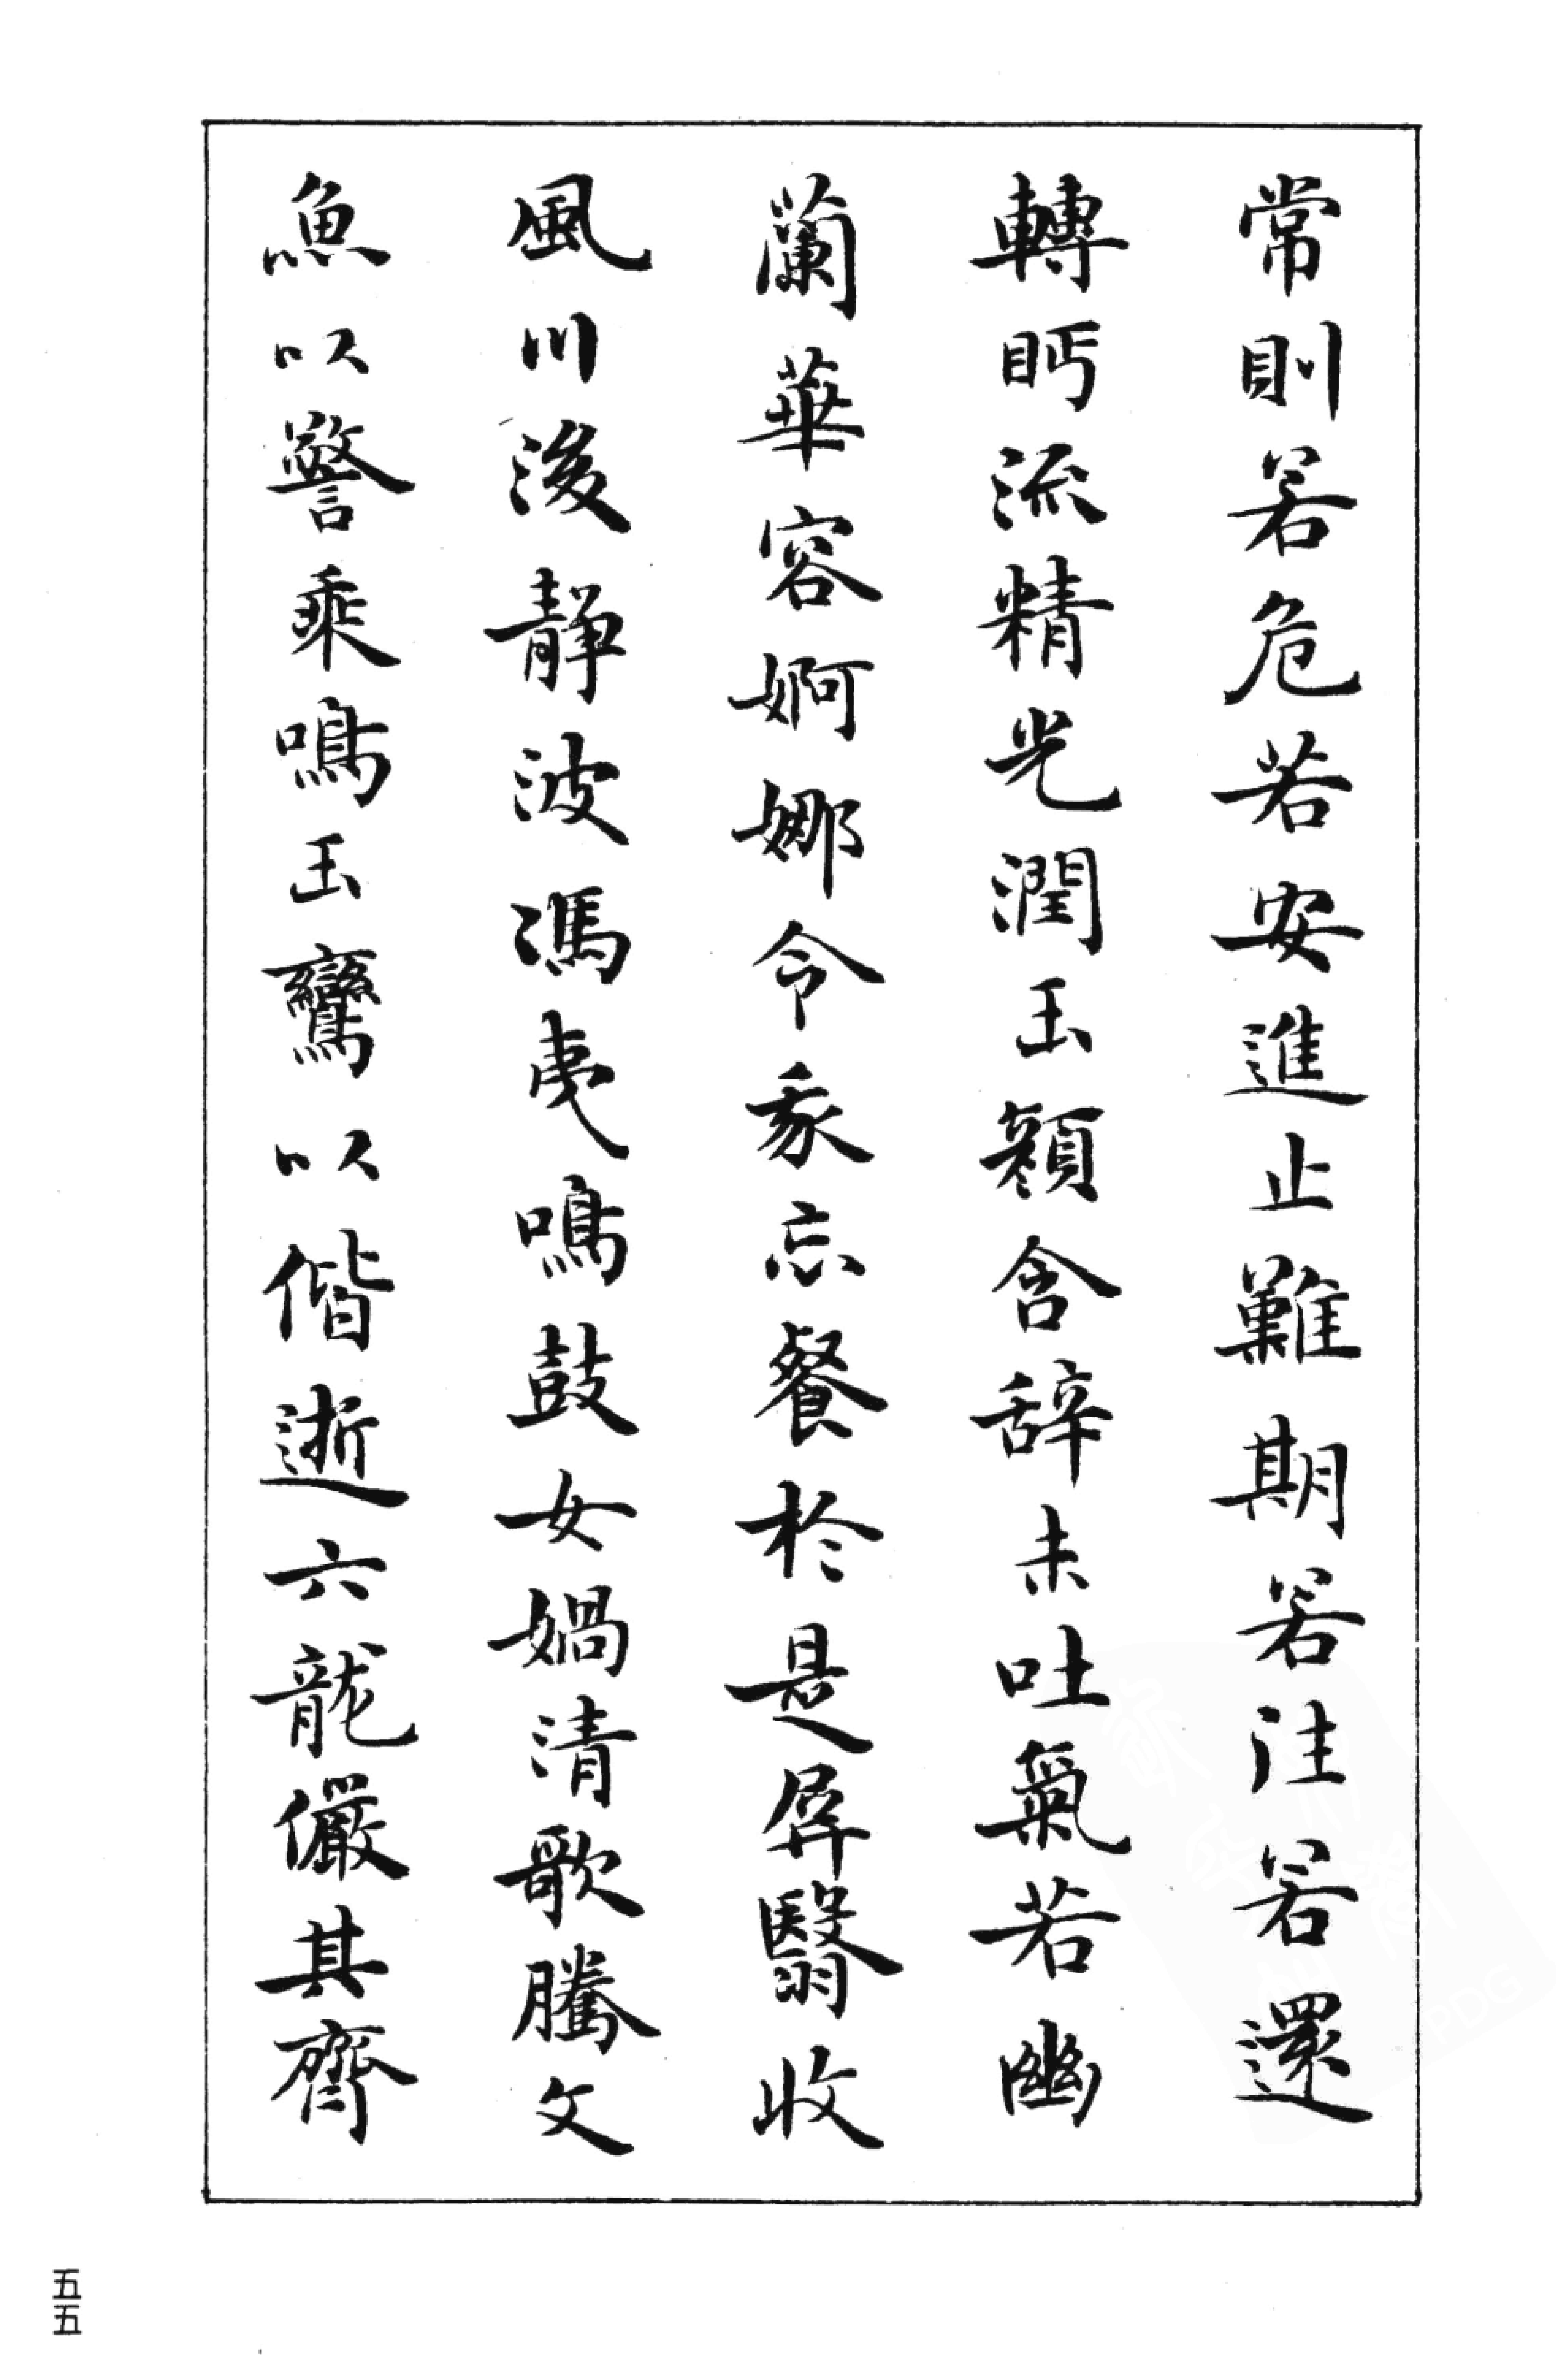 常則若危若安進止難期若往若還
轉眄流精光潤玉顏含辭未吐氣若幽
蘭華容婀娜令我忘餐於是屏翳收
風川後靜波馮夷鳴鼓女媧清歌騰文
魚以警乘鳴玉鸞以偕逝六龍儼其齊
五五